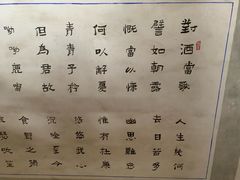 對酒當歌
人生幾何
譬如朝露
去日苦多
慨當以慷
幽思難忘
何以解憂
惟有杜康
青青子衿
悠悠我心
但為君故
沉吟至今
呦呦鹿鳴
食野之苹